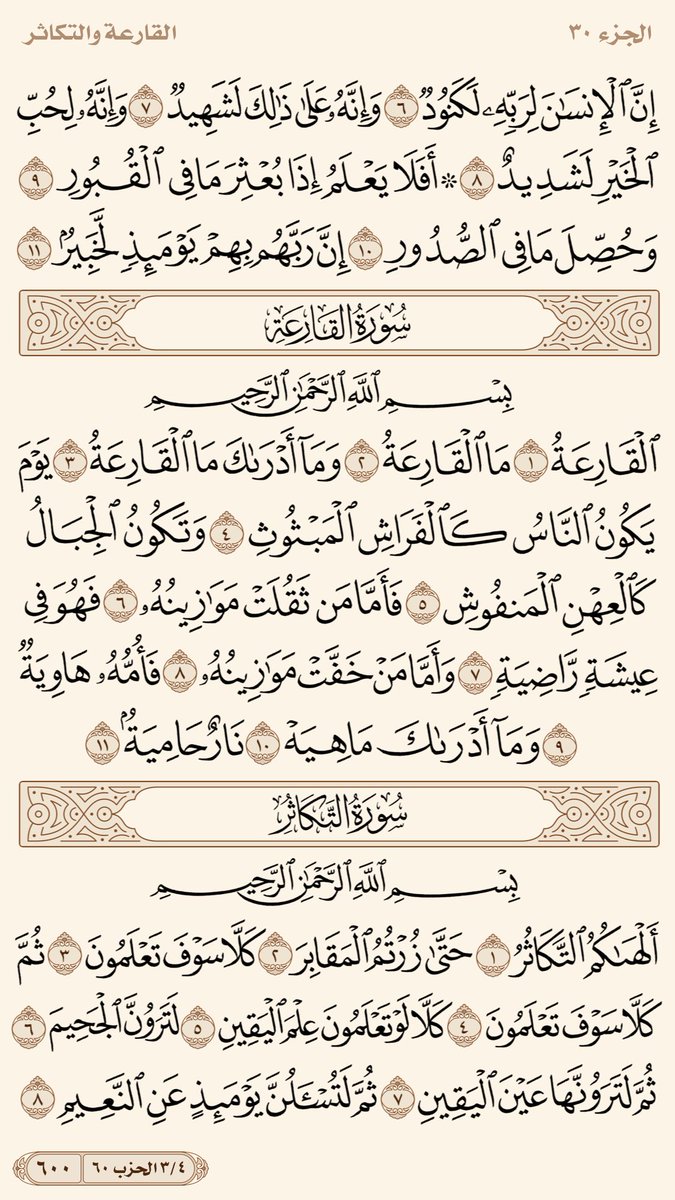 الجزء ٣٠
القارعة والتكاثر
إِنَّ ٱلْإِنسَٰنَ لِرَبِّهِۦ لَكَنُودٌ ٦ وَإِنَّهُۥ عَلَىٰ ذَٰلِكَ لَشَهِيدٌ ٧ وَإِنَّهُۥ لِحُبِّ
ٱلْخَيْرِ لَشَدِيدٌ ٨ ۞ أَفَلَا يَعْلَمُ إِذَا بُعْثِرَ مَا فِى ٱلْقُبُورِ ٩
وَحُصِّلَ مَا فِى ٱلصُّدُورِ ١٠ إِنَّ رَبَّهُم بِهِمْ يَوْمَئِذٍ لَّخَبِيرٌۢ ١١
سُورَةُ القَارِعَةِ
بِسْمِ ٱللَّهِ ٱلرَّحْمَٰنِ ٱلرَّحِيمِ
ٱلْقَارِعَةُ ١ مَا ٱلْقَارِعَةُ ٢ وَمَآ أَدْرَىٰكَ مَا ٱلْقَارِعَةُ ٣ يَوْمَ
يَكُونُ ٱلنَّاسُ كَٱلْفَرَاشِ ٱلْمَبْثُوثِ ٤ وَتَكُونُ ٱلْجِبَالُ
كَٱلْعِهْنِ ٱلْمَنفُوشِ ٥ فَأَمَّا مَن ثَقُلَتْ مَوَٰزِينُهُۥ ٦ فَهُوَ فِى
عِيشَةٍ رَّاضِيَةٍ ٧ وَأَمَّا مَنْ خَفَّتْ مَوَٰزِينُهُۥ ٨ فَأُمُّهُۥ هَاوِيَةٌ
٩ وَمَآ أَدْرَىٰكَ مَا هِيَهْ ١٠ نَارٌ حَامِيَةٌۢ ١١
سُورَةُ التَّكَاثُرِ
بِسْمِ ٱللَّهِ ٱلرَّحْمَٰنِ ٱلرَّحِيمِ
أَلْهَىٰكُمُ ٱلتَّكَاثُرُ ١ حَتَّىٰ زُرْتُمُ ٱلْمَقَابِرَ ٢ كَلَّا سَوْفَ تَعْلَمُونَ ٣ ثُمَّ
كَلَّا سَوْفَ تَعْلَمُونَ ٤ كَلَّا لَوْ تَعْلَمُونَ عِلْمَ ٱلْيَقِينِ ٥ لَتَرَوُنَّ ٱلْجَحِيمَ ٦
ثُمَّ لَتَرَوُنَّهَا عَيْنَ ٱلْيَقِينِ ٧ ثُمَّ لَتُسْـَٔلُنَّ يَوْمَئِذٍ عَنِ ٱلنَّعِيمِ ٨
٣/٤ الحزب ٦٠
٦٠٠